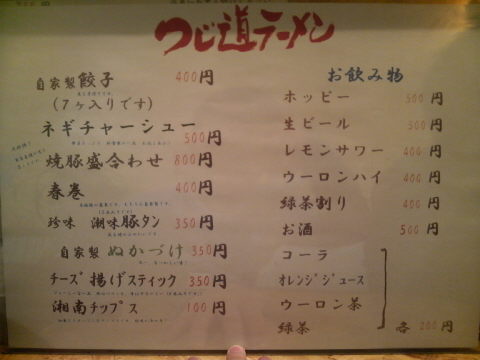 つじ道ラーメン
自家製餃子 400円
(7ヶ入りです)
ネギチャーシュー 500円
焼豚盛合わせ 800円
春巻 400円
珍味 潮味豚タン 350円
自家製 ぬかづけ 350円
チーズ揚げスティック 350円
湘南チップス 100円
お飲み物
ホッピー 500円
生ビール 500円
レモンサワー 400円
ウーロンハイ 400円
緑茶割り 400円
お酒 500円
コーラ
オレンジジュース
ウーロン茶
緑茶 各 200円